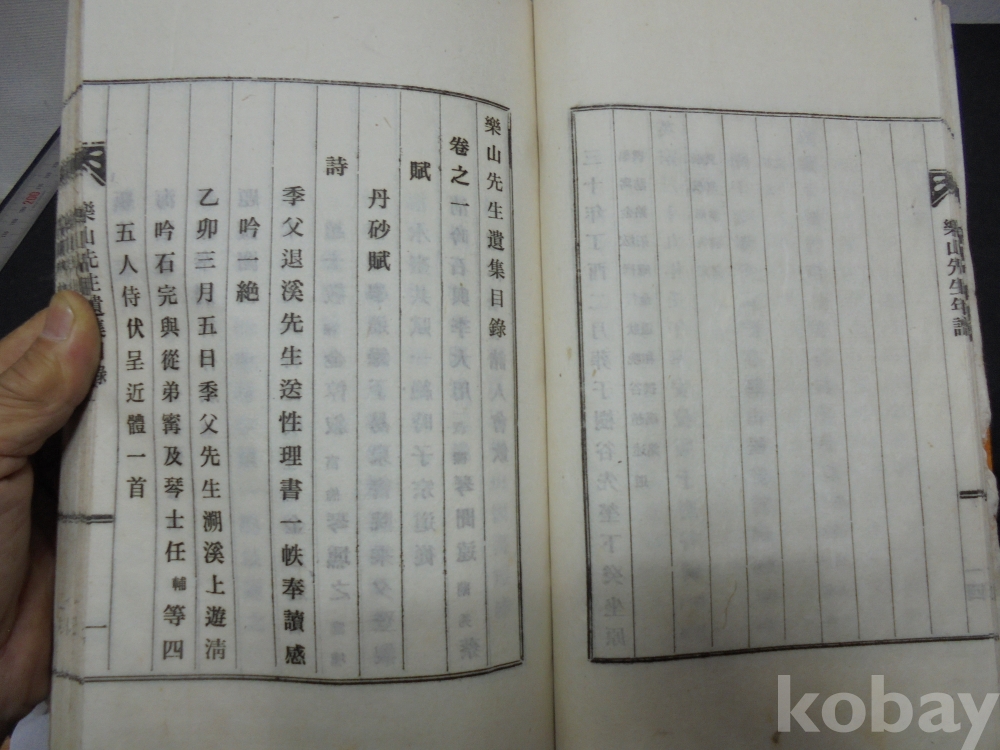 樂山先生年譜
樂山先生遺集目錄
卷之一
賦
丹砂賦
詩
季父退溪先生送性理書一帙奉讀感
吟一絶
乙卯三月五日季父先生溯溪上遊淸
吟石完與從弟寗及琴士任輔等四
五人侍伏呈近體一首
樂山先生遺集目錄
一
kobay